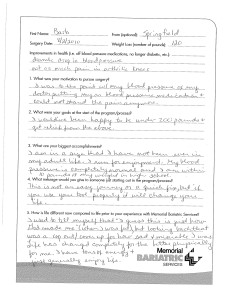 First Name: Barb Town (optional): Springfield
Surgery Date: 4/6/2010 Weight Loss (number of pounds): 120
Improvements in health (i.e. off blood pressure medications, no longer diabetic, etc.)
drop in blood pressure
not as much pain in arthritic knees
1. What was your motivation to pursue surgery?
I was to the point of my blood pressure & my
doctor putting my on blood pressure medication &
could not stand the pain anymore.
2. What were your goals at the start of program/process?
I would've been happy to be under 200 pounds &
get relief from the above.
3. What are your biggest accomplishments?
I am in a size that I have not been into in
my adult life. I am for enjoyment. My blood
pressure is completely normal and I am within
10 pounds of my weight in high school.
4. What message would you give to someone just starting out in the program/process?
This is not an easy journey or a quick fix, but if
you use your tool properly it will change your
life.
5. How is life different now compared to life prior to your experience with Memorial Bariatric Services?
I used to tell myself that I guess this is just how
God made me. I thought I was but looking back
was a cop out/cover up for how sad & miserable I was.
Life has changed completely for the better physically
for me. I have tons of energy &
Memorial
BARIATRIC
SERVICES